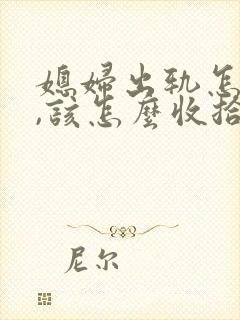 媳婦出軌怎
,該怎麼收拾
尼尔